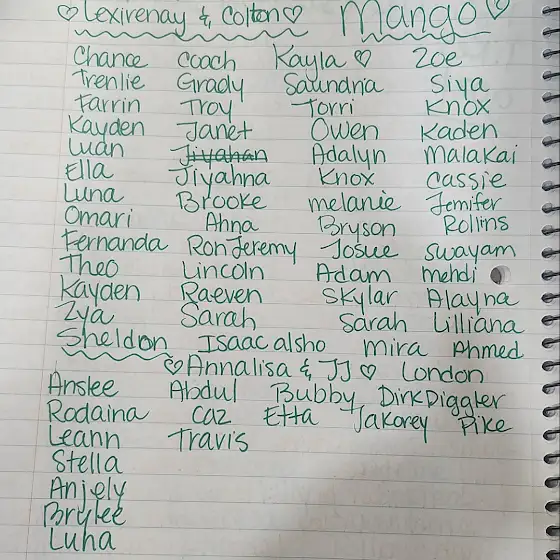 ♡Lexirenay & Colton♡ Mango♡
Chance Coach Kayla♡ Zoe
Trenlie Grady Saundria Siya
Farrin Troy Torri Knox
Kayden Janet Owen Kaden
Luan Jiyahan Adalyn Malakai
Ella Jiyahna Knox Cassie
Luna Brooke melanie Jemifer
Omari Ahna Bryson Rollins
Fernanda Ron Jeremy Josue Swayam
Theo Lincoln Adam mehdi
Kayden Raeven Skylar Alayna
Zya Sarah Sarah Lilliana
Sheldon Isaac alsho mira Ahmed
♡Annalisa & JJ♡ London
Anslee Abdul Bubby Dirk Diggler
Rodaina Caz Etta Jakorey Pike
Leann Travis
Stella
Anjely
Brylee
Luha